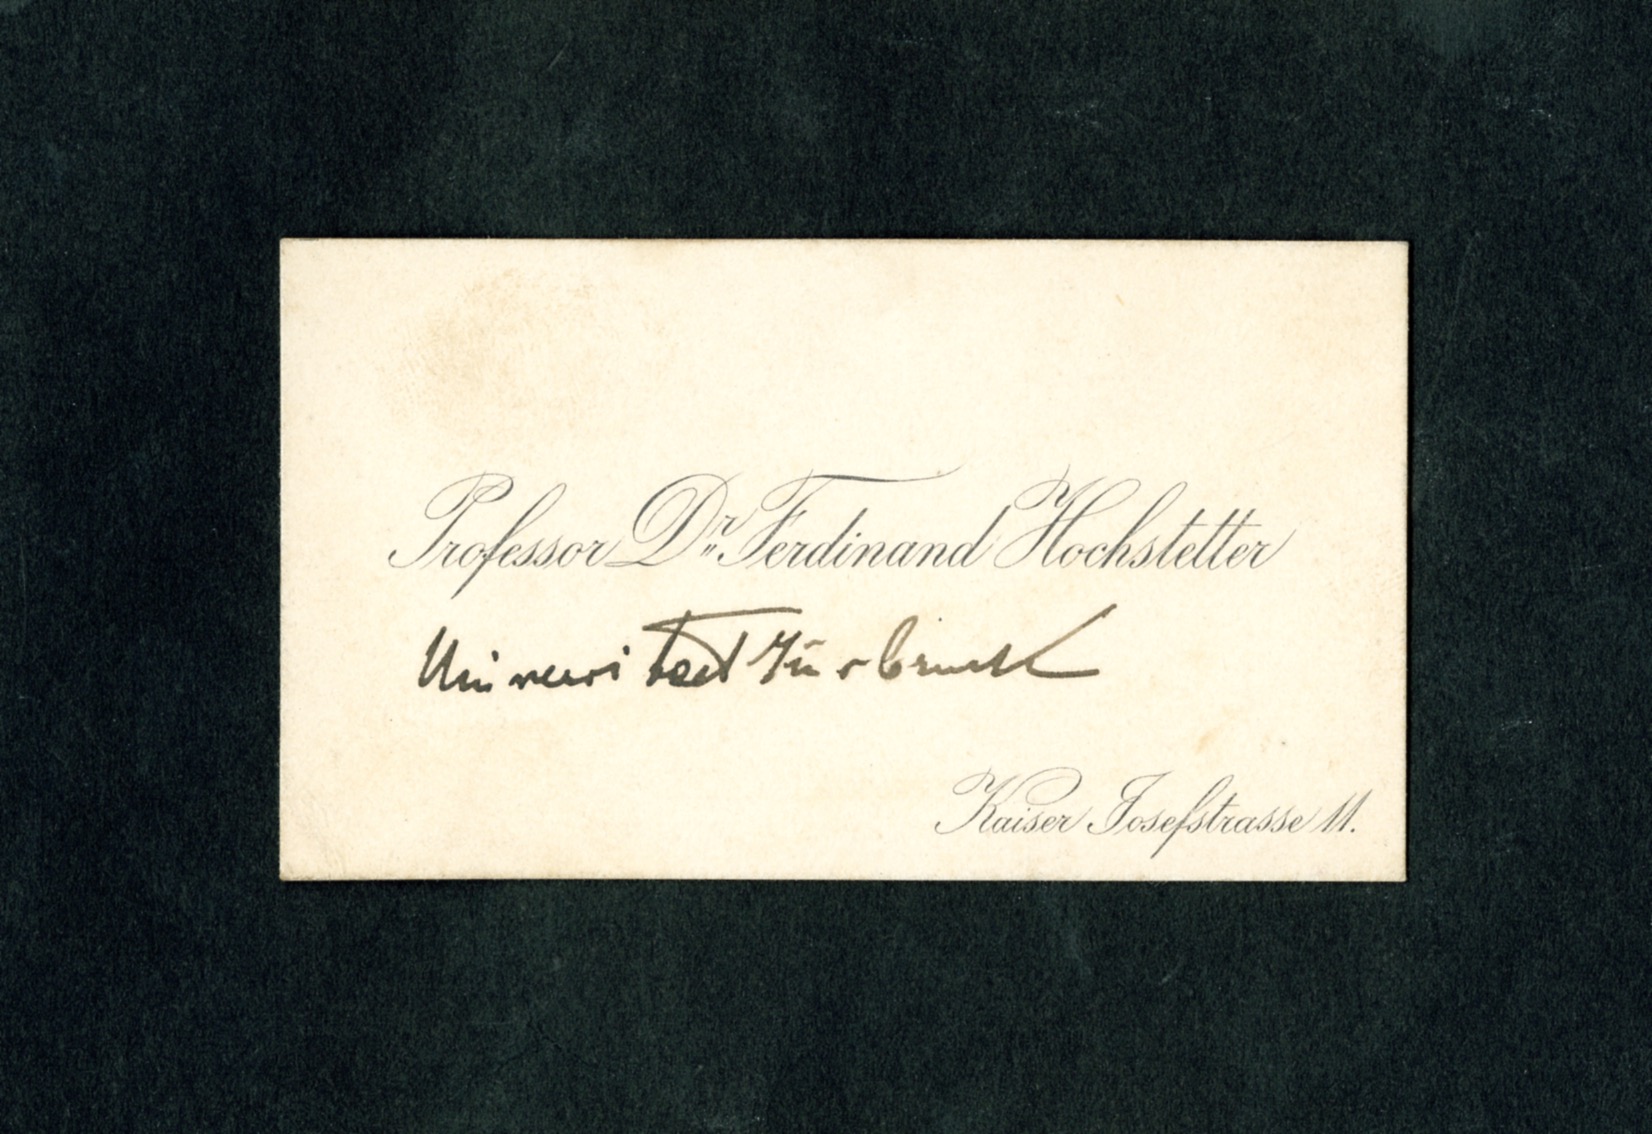 Professor Dr. Ferdinand Hochstetter
Universitaet Innsbruck
Kaiser Josefstrasse 11.